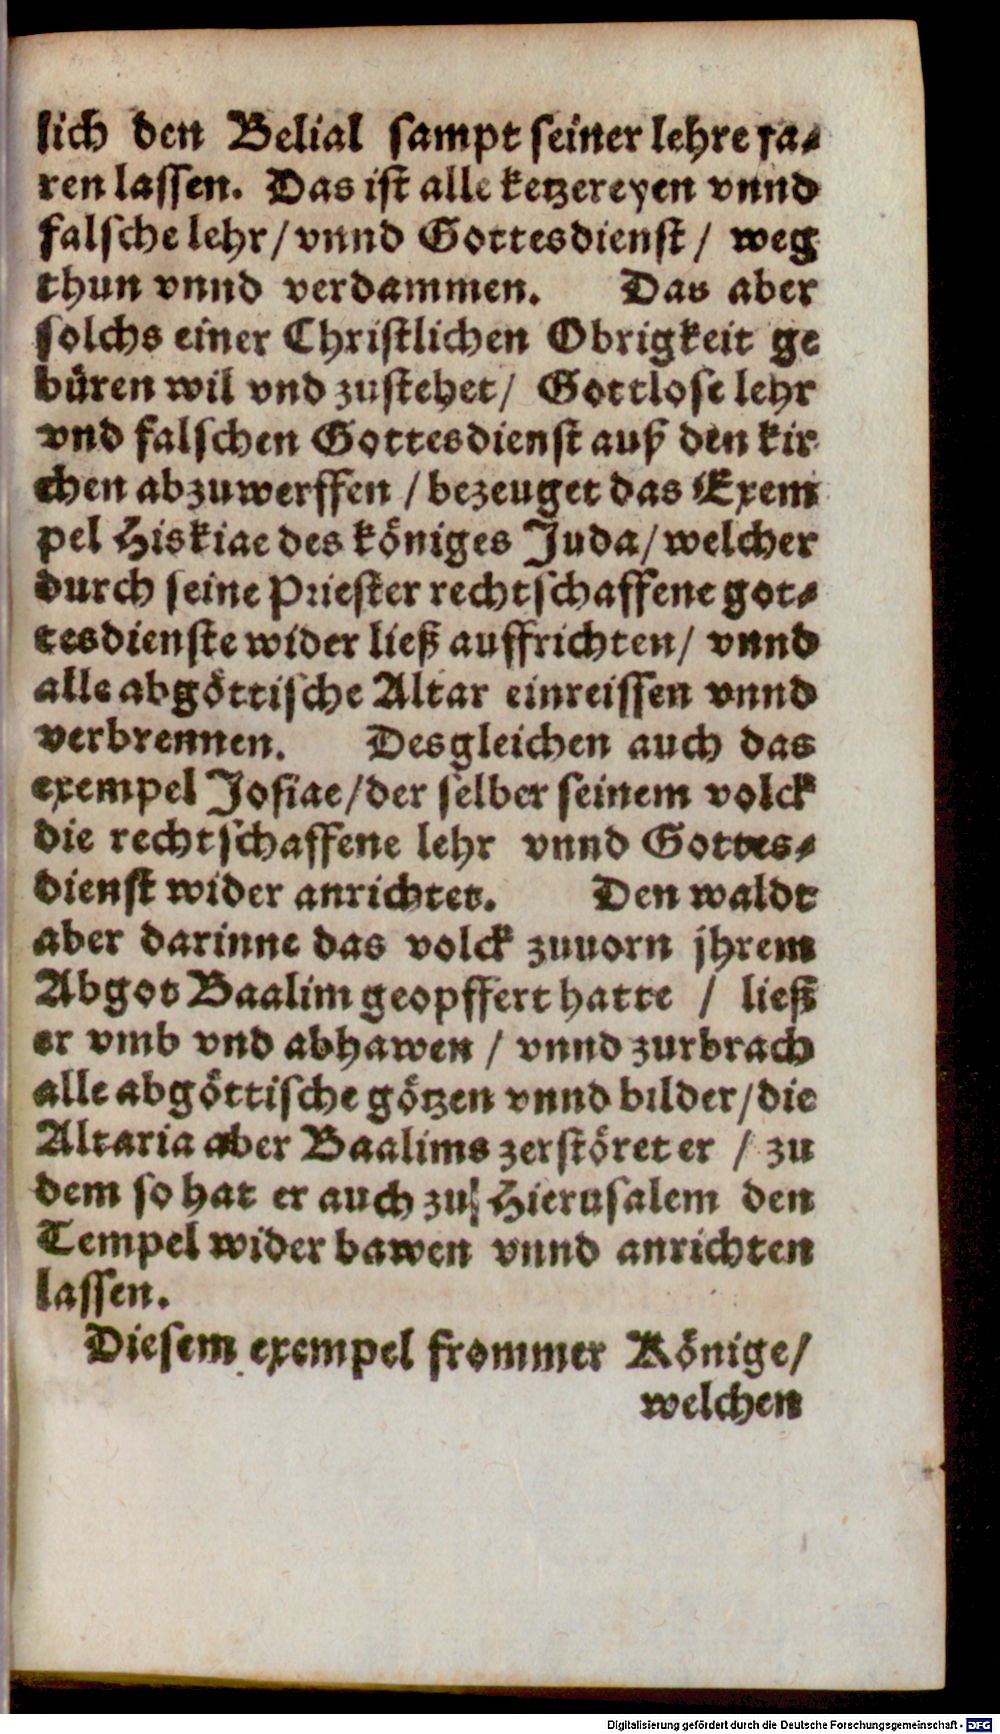 lich den Belial sampt seiner lehre fa-
ren lassen. Das ist alle ketzereyen vnnd
falsche lehr/ vnnd Gottesdienst/ weg
thun vnnd verdammen. Das aber
solchs einer Christlichen Obrigkeit ge
büren wil vnd zustehet/ Gottlose lehr
vnd falschen Gottesdienst auß den kir
chen abzuwerffen / bezeuget das Exem
pel Hiskiae des königes Juda/ welcher
durch seine Priester rechtschaffene got-
tesdienste wider ließ auffrichten/ vnnd
alle abgöttische Altar einreissen vnnd
verbrennen. Desgleichen auch das
exempel Josiae/ der selber seinem volck
die rechtschaffene lehr vnnd Gottes-
dienst wider anrichtet. Den waldt
aber darinne das volck zuuorn jhrem
Abgot Baalim geopffert hatte / ließ
er vmb vnd abhawen / vnnd zurbrach
alle abgöttische götzen vnnd bilder/ die
Altaria aber Baalims zerstöret er / zu
dem so hat er auch zu Hierusalem den
Tempel wider bawen vnnd anrichten
lassen.
Diesem exempel frommer Könige/
welchen
Digitalisierung gefördert durch die Deutsche Forschungsgemeinschaft - DFG